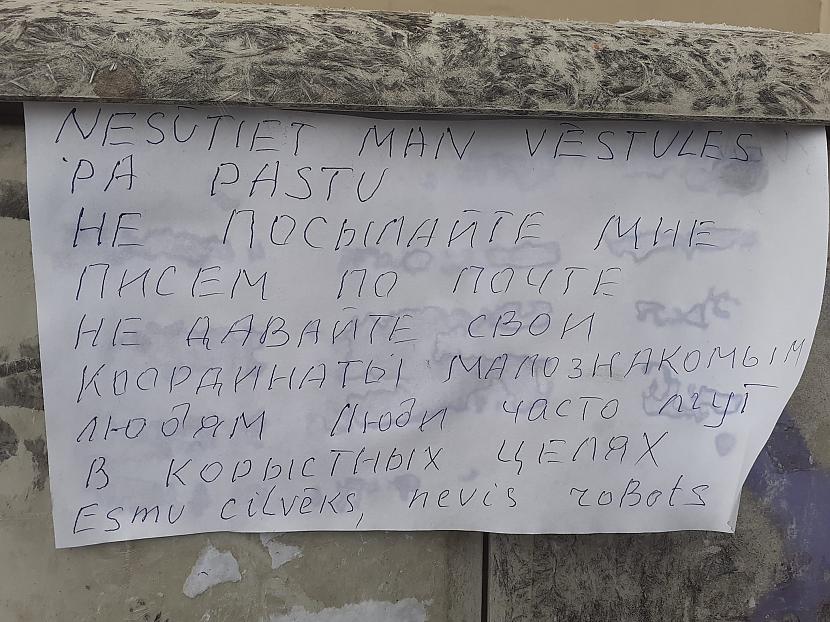 NESŪTIET MAN VĒSTULES
PA PASTU
НЕ ПОСЫЛАЙТЕ МНЕ
ПИСЕМ ПО ПОЧТЕ
НЕ ДАВАЙТЕ СВОИ
КООРДИНАТЫ МАЛОЗНАКОМЫМ
ЛЮДЯМ ЛЮДИ ЧАСТО ЛГУТ
В КОРЫСТНЫХ ЦЕЛЯХ
Esmu cilvēks, nevis roBots